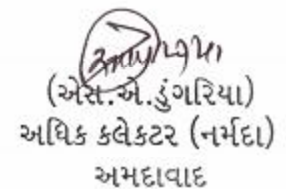 (એસ.એ.ડુંગરિયા)
અધિક કલેકટર (નર્મદા)
અમદાવાદ